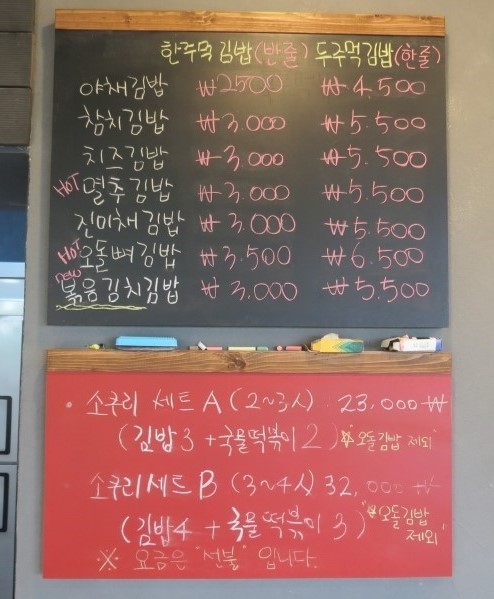 한주먹 김밥(반줄) 두주먹김밥(한줄)
야채김밥 ₩2500 ₩4,500
참치김밥 ₩3.000 ₩5.500
치즈김밥 ₩3.000 ₩5.500
HOT 멸추김밥 ₩3.000 ₩5.500
진미채김밥 ₩3.000 ₩5.500
HOT 오돌뼈김밥 ₩3.500 ₩6.500
new 볶음김치김밥 ₩3.000 ₩5.500
• 소쿠리 세트 A (2~3人) 23,000 ₩
(김밥3 + 국물떡볶이 2) ※"오돌김밥 제외"
소쿠리세트 B (3~4人) 32,000 ₩
(김밥4 + 국물떡볶이 3) ※"오돌김밥
제외"
※ 요금은 "선불" 입니다.